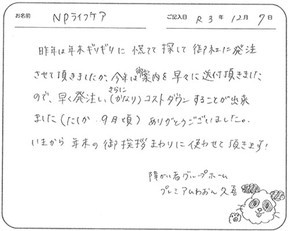 お名前 NPライフケア ご記入日 R3年12月7日
昨年は年末ギリギリに慌てて探して御社に発注
させて頂きましたが、今年は案内を早々に送付頂きました
ので、早く発注し、さらに(かなり)コストダウンすることが出来
ました(たしか9月頃)ありがとうございました。
いまから年末の御挨拶まわりに使わせて頂きます!
障がい者グループホーム
プレミアムわおん久喜